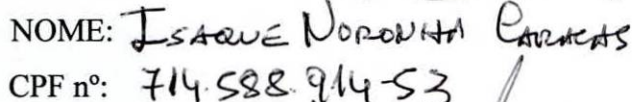 NOME: ISAQUE NORONHA CARACAS
CPF nº: 714.588.914-53